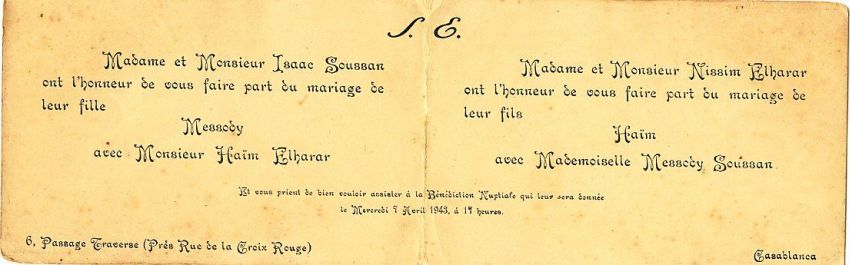 S. E.
Madame et Monsieur Isaac Soussan
ont l'honneur de vous faire part du mariage de
leur fille
Messody
avec Monsieur Haïm Elharar
Madame et Monsieur Nissim Elharar
ont l'honneur de vous faire part du mariage de
leur fils
Haïm
avec Mademoiselle Messody Soussan
Et vous prient de bien vouloir assister à la Bénédiction Nuptiale qui leur sera donnée
le Mercredi 7 Avril 1943, à 17 heures.
6, Passage Traverse (Prés Rue de la Croix Rouge)
Casablanca